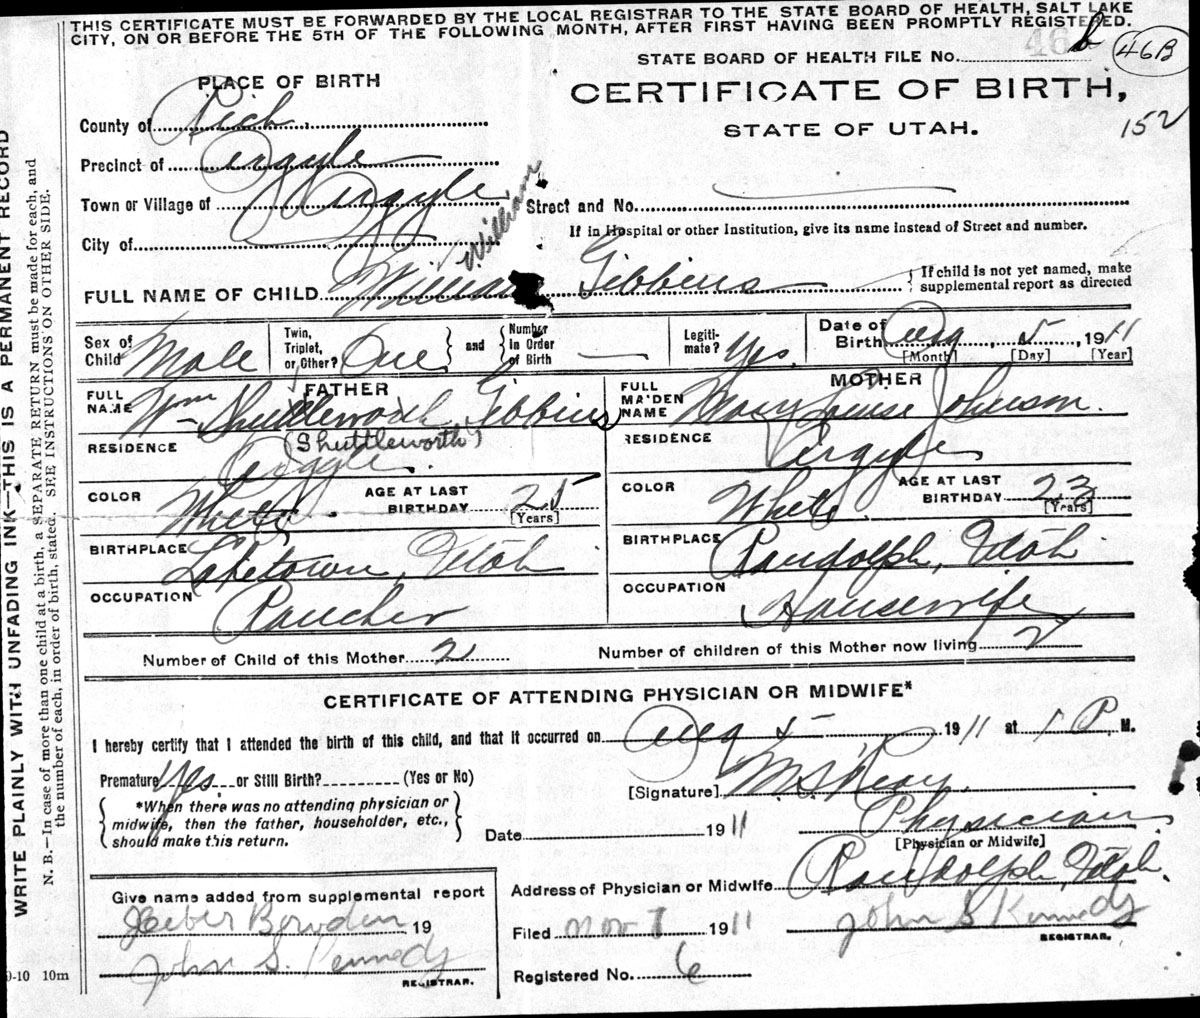 THIS CERTIFICATE MUST BE FORWARDED BY THE LOCAL REGISTRAR TO THE STATE BOARD OF HEALTH, SALT LAKE
CITY, ON OR BEFORE THE 5TH OF THE FOLLOWING MONTH, AFTER FIRST HAVING BEEN PROMPTLY REGISTERED.
46 b 46B
STATE BOARD OF HEALTH FILE No.
PLACE OF BIRTH
CERTIFICATE OF BIRTH,
STATE OF UTAH.
152
County of Rich
Precinct of Argyle
Town or Village of Argyle
Street and No.
City of
If in Hospital or other Institution, give its name instead of Street and number.
William
FULL NAME OF CHILD William Gibbins
If child is not yet named, make
supplemental report as directed
Sex of Child Male
Twin, Triplet, or Other? One
and Number in Order of Birth
Legiti- mate? Yes
Date of Birth Aug 5, 1911
[Month] [Day] [Year]
FATHER
MOTHER
FULL NAME Wm Shuttleworth Gibbins
FULL MAIDEN NAME Mary Louise Johnson.
(Shuttleworth)
RESIDENCE Argyle.
RESIDENCE Argyle
COLOR White. AGE AT LAST BIRTHDAY 25 [Years]
COLOR White AGE AT LAST BIRTHDAY 23 [Years]
BIRTHPLACE Laketown, Utah
BIRTHPLACE Randolph, Utah
OCCUPATION Rancher
OCCUPATION Housewife
Number of Child of this Mother 2
Number of children of this Mother now living 2
CERTIFICATE OF ATTENDING PHYSICIAN OR MIDWIFE*
I hereby certify that I attended the birth of this child, and that it occurred on Aug 5 1911 at 1 P. M.
Premature Yes. or Still Birth? (Yes or No)
[Signature]
*When there was no attending physician or
midwife, then the father, householder, etc.,
should make this return.
Date 1911
Physician
[Physician or Midwife]
Address of Physician or Midwife Randolph, Utah.
Give name added from supplemental report
Heber Bowden 19
John S. Kennedy
REGISTRAR.
Filed Nov 7 1911
John S Kennedy
REGISTRAR.
Registered No. 6
0-10 10m
WRITE PLAINLY WITH UNFADING INK—THIS IS A PERMANENT RECORD
N. B.—In case of more than one child at a birth, a SEPARATE RETURN must be made for each, and
the number of each, in order of birth, stated. SEE INSTRUCTIONS ON OTHER SIDE.